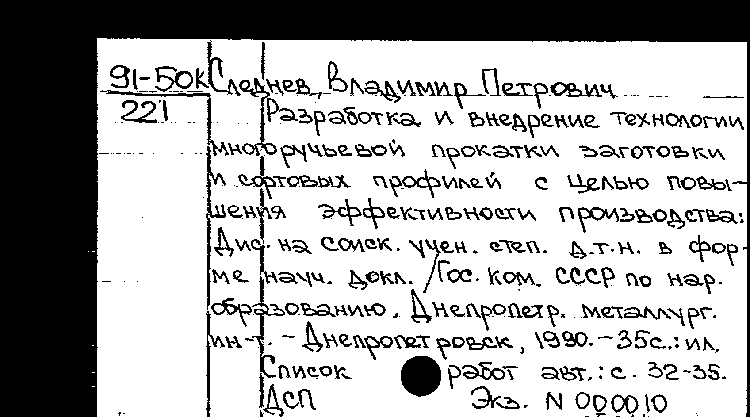 91-50кСледнев, Владимир Петрович
221 Разработка и внедрение технологии
многоручьевой прокатки заготовки
и сортовых профилей с целью повы-
шения эффективности производства:
Дис. на соиск. учен. степ. д.т.н. в фор-
ме науч. докл. /Гос. ком. СССР по нар.
образованию. Днепропетр. металлург.
ин-т. - Днепропетровск, 1990. - 35с.: ил.
Список работ авт.: с. 32-35.
ДСП Экз. N 000010